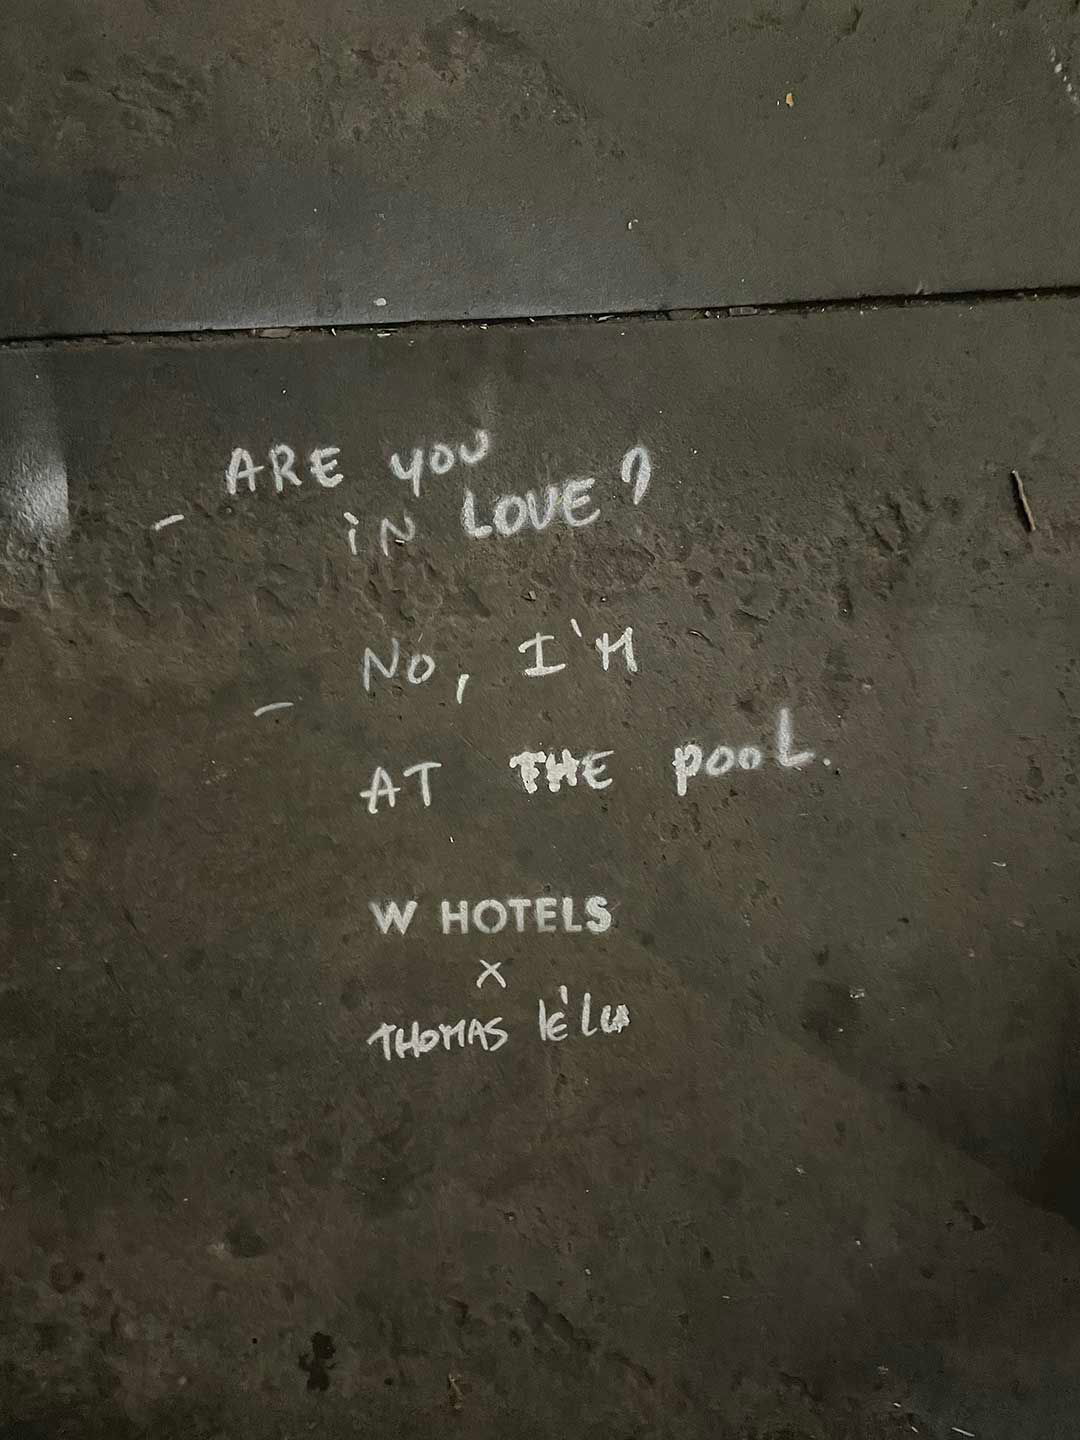 - ARE YOU
iN LOVE?
- No, I'M
AT THE pooL.
W HOTELS
x
THOMAS lélu